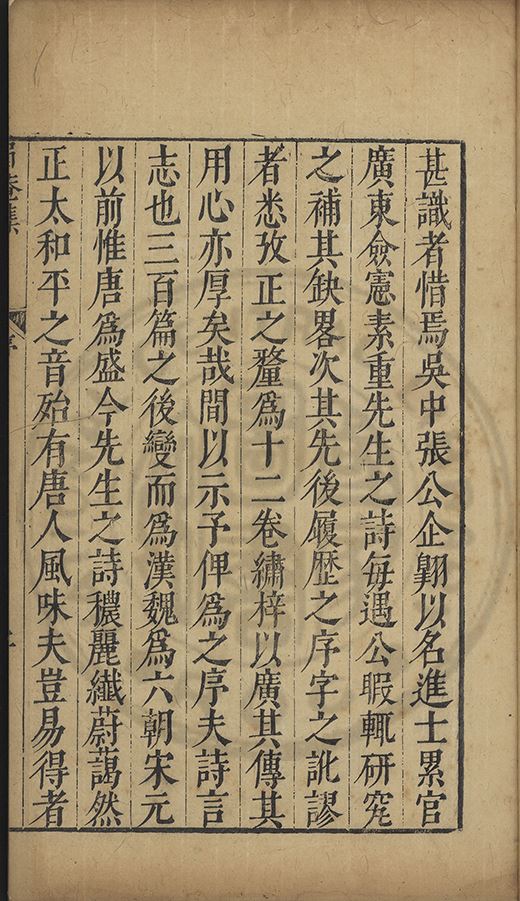 甚識者惜焉吳中張公企翺以名進士累官
廣東僉憲素重先生之詩每遇公暇輒研究
之補其缺畧次其先後履歷之序字之訛謬
者悉攷正之釐爲十二卷繡梓以廣其傳其
用心亦厚矣哉間以示予俾爲之序夫詩言
志也三百篇之後變而爲漢魏爲六朝宋元
以前惟唐爲盛今先生之詩穠麗纖蔚藹然
正太和平之音殆有唐人風味夫豈易得者